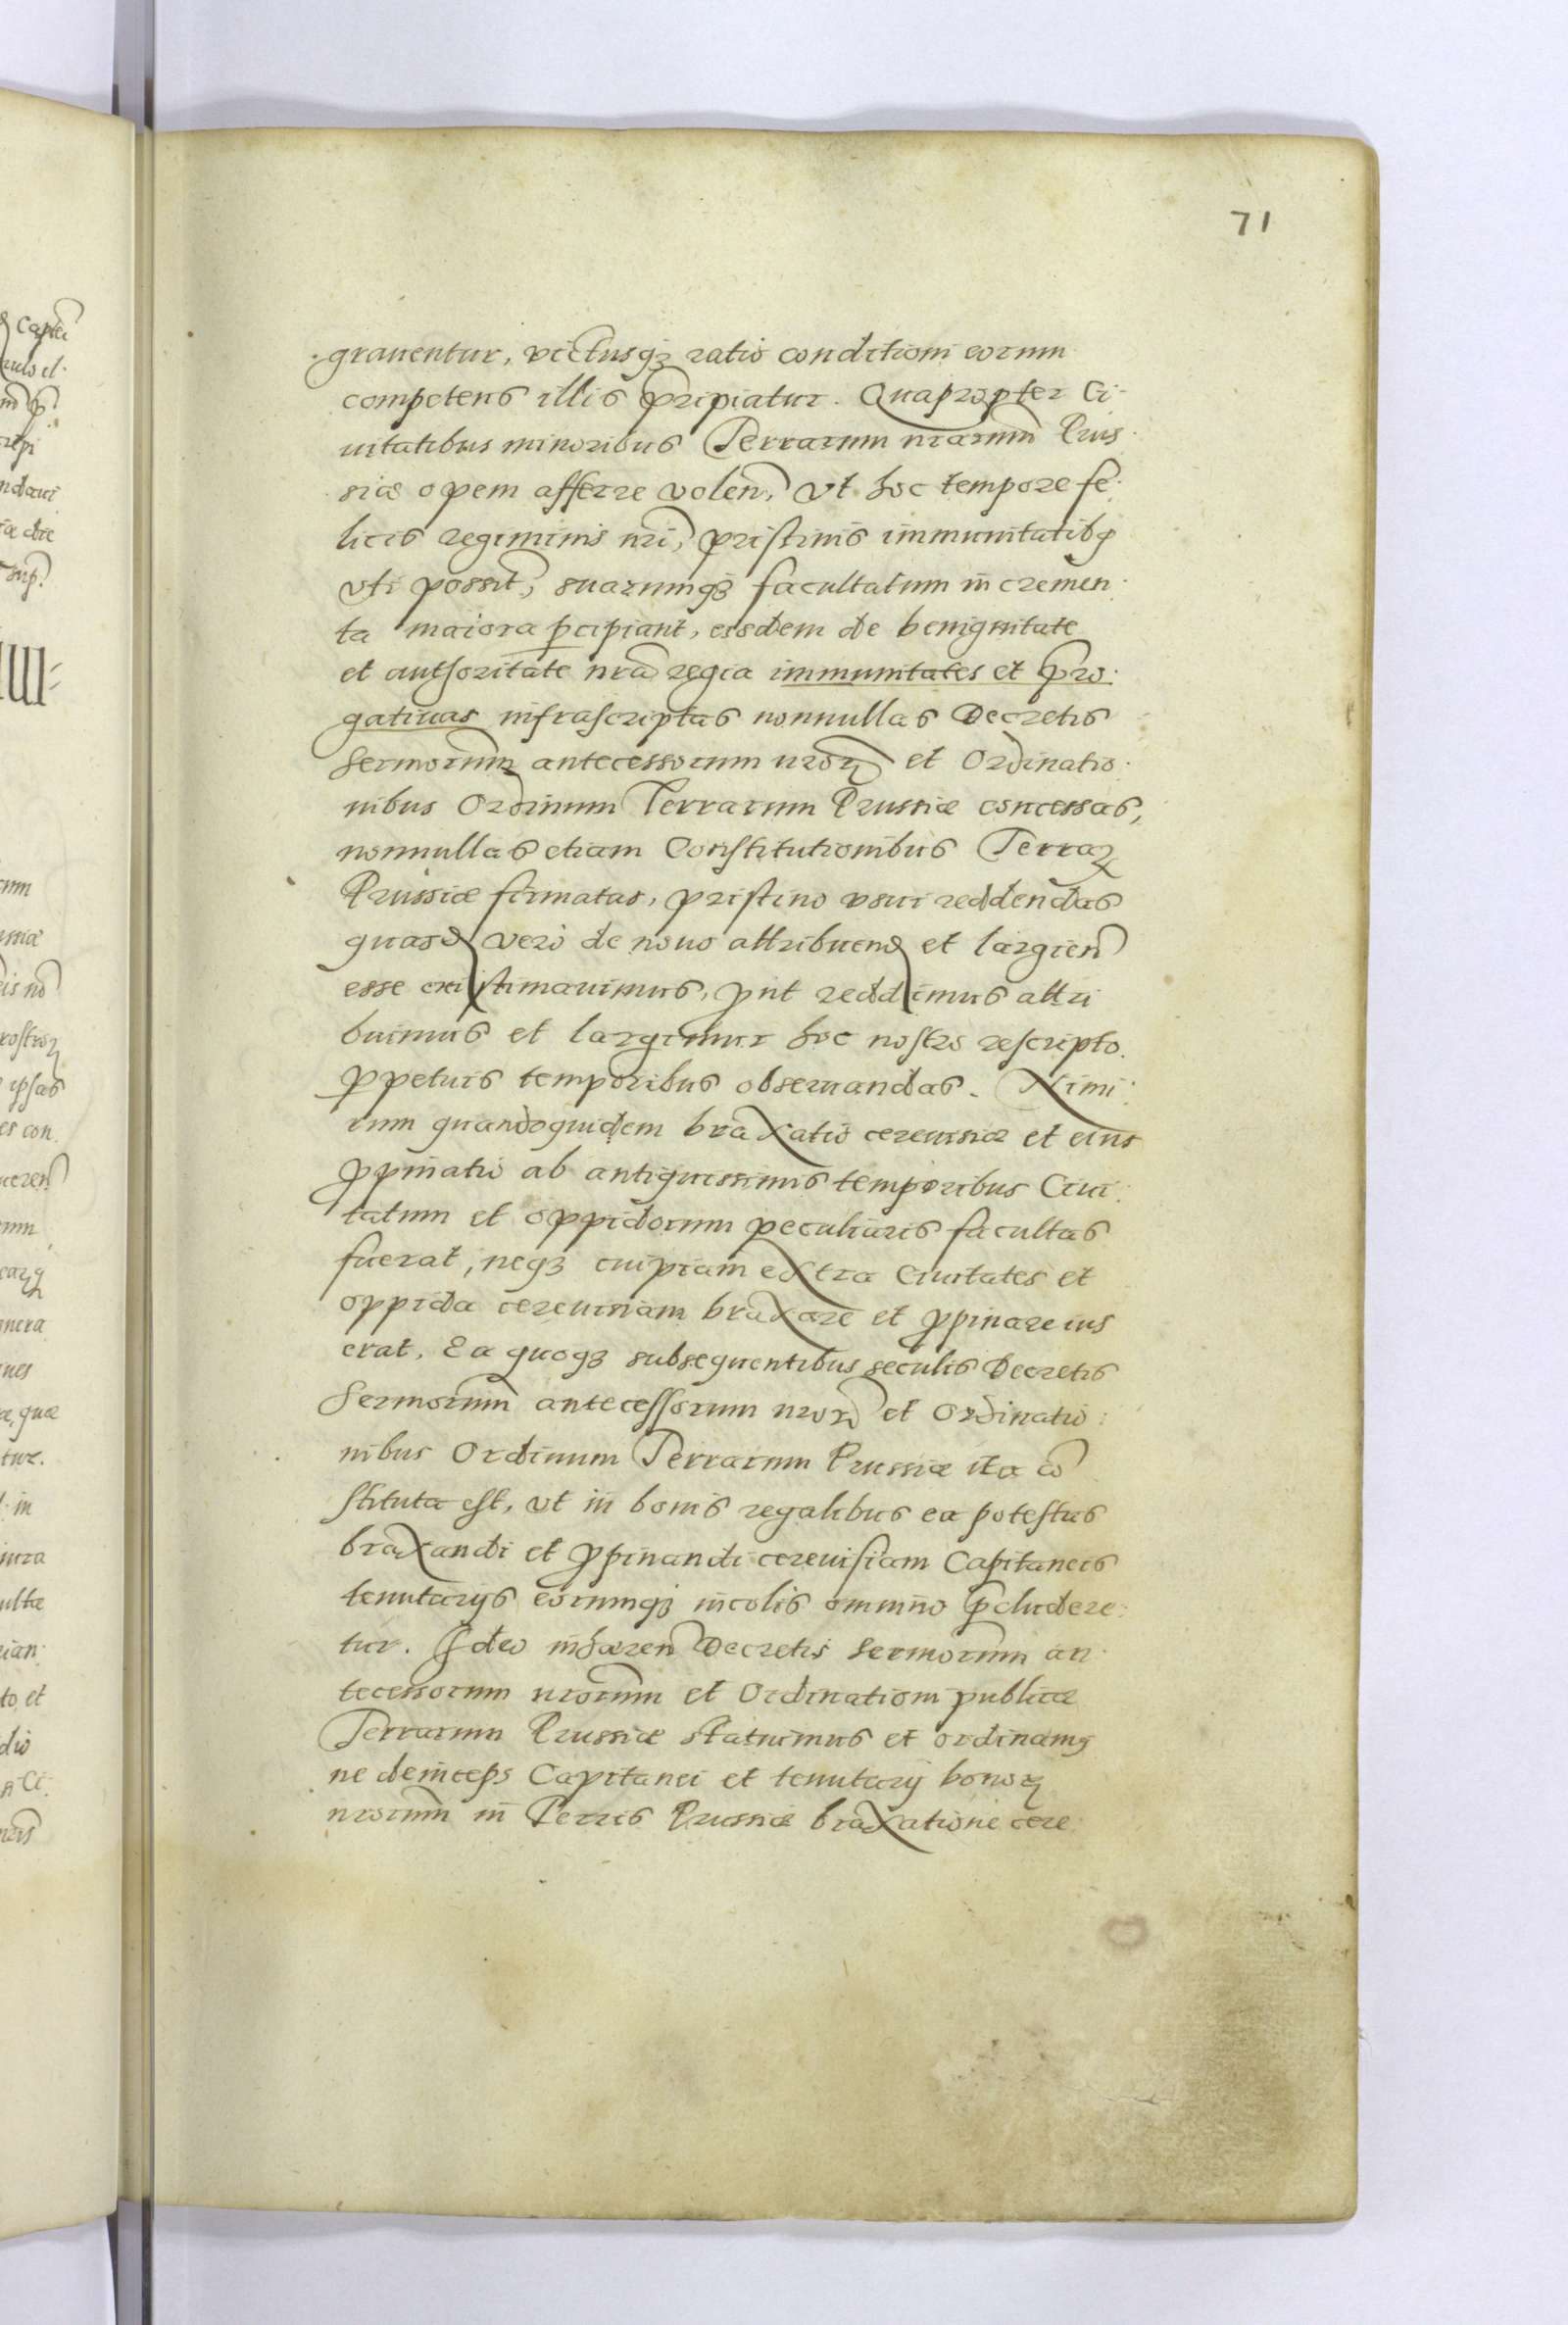 71
grauentur, victusqꝫ ratio conditioni eorum
competens illis p̃ripiatur. Quapropter Ci-
uitatibus minoribus Terrarum nr̃arum Prus
siæ opem afferre volen̄, vt hoc tempore fe
licis regiminis nr̃i, pristinis immunitatibꝯ
vti possit, suarumqꝫ facultatum incremen
ta maiora ꝑcipiant, eisdem de benignitate
et authoritate nr̃a regia immunitates et p̃ro
gatiuas infrascriptas nonnullas Decretis
Sermorum antecessorum nr̃oꝝ et Ordinatio
nibus Ordinum Terrarum Prussiæ concessas,
nonnullas etiam Constitutionibus Terraꝝ
Prussiæ firmatas, pristino vsui reddendas
quasꝺ vero de nouo attribuenꝺ et largien̄
esse existimauimus, ꝓut reddimus attri
buimus et largimur hoc nostro rescripto
ꝑpetuis temporibus obseruandas. Nimi
rum quandoquidem braxatio cereuisiæ et eius
ꝓpinatio ab antiquissimis temporibus Ciui
tatum et oppidorum peculiaris facultas
fuerat, neqꝫ cuipiam extra Ciuitates et
oppida cereuisiam braxare et ꝓpinare ius
erat. Ea quoqꝫ subsequentibus seculis Decretis
Sermorum antecessorum nr̃oꝝ et Ordinatio
nibus Ordinum Terrarum Prussiæ ita cō
stituta est, vt in bonis regalibus ea potestas
braxandi et ꝓpinandi cereuisiam Capitaneis
tenutarijs eorumqꝫ incolis omnino p̃cludere
tur. Ideo inhæren̄ Decretis Sermorum an
tecessorum nr̃orum et Ordinationi publicæ
Terrarum Prussiæ statuimus et ordinamꝯ
ne deinceps Capitanei et tenutarij bonoꝝ
nr̃orum in Terris Prussiæ braxatione cere